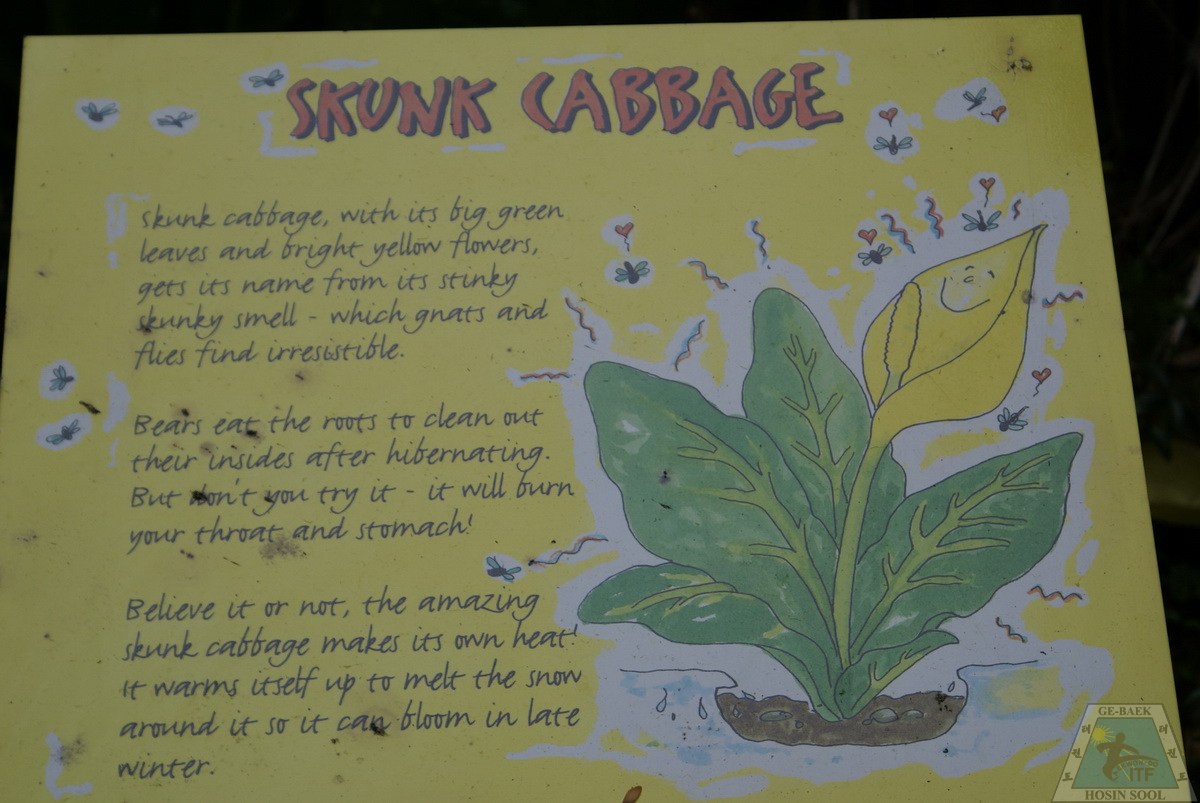 SKUNK CABBAGE
skunk cabbage, with its big green
leaves and bright yellow flowers,
gets its name from its stinky
skunky smell - which gnats and
flies find irresistible.
Bears eat the roots to clean out
their insides after hibernating.
But don't you try it - it will burn
your throat and stomach!
Believe it or not, the amazing
skunk cabbage makes its own heat!
It warms itself up to melt the snow
around it so it can bloom in late
winter.
GE-BAEK
태 태
권 권
도 도
ITF
HOSIN SOOL